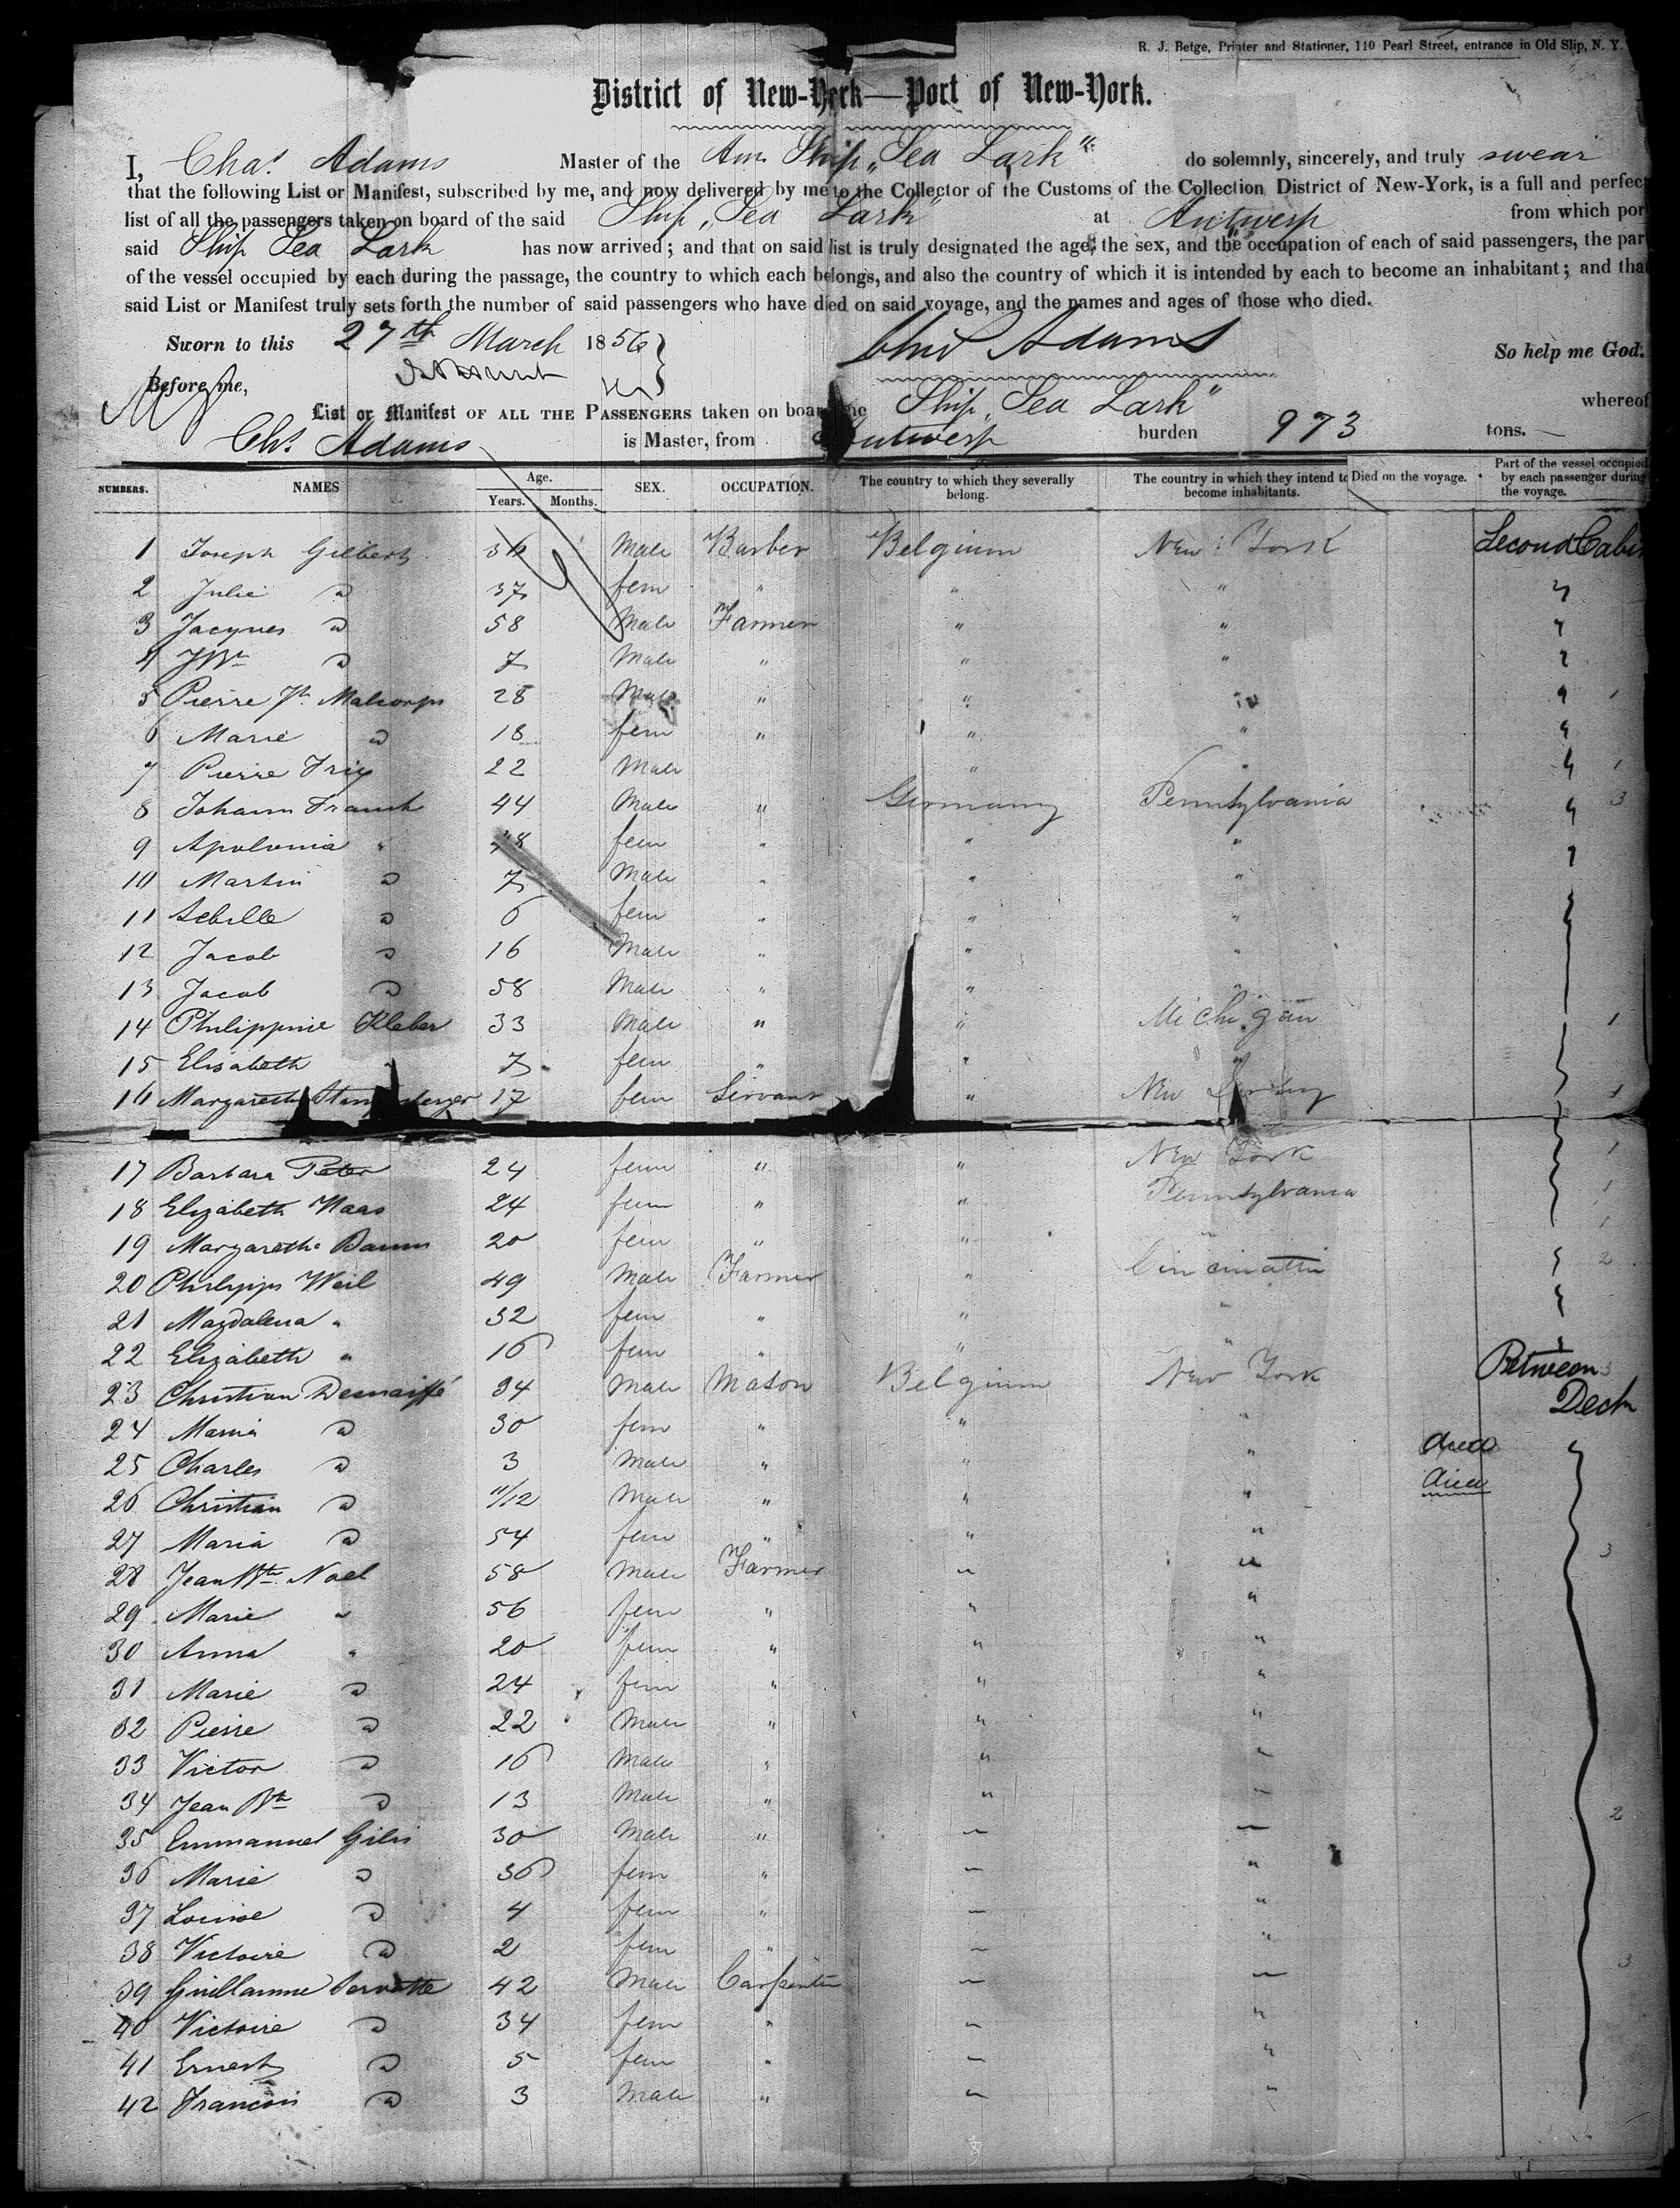 R. J. Betge, Printer and Stationer, 110 Pearl Street, entrance in Old Slip, N. Y.
District of New-York—Port of New-York.
I, Chas. Adams Master of the Am. Ship „Sea Lark" do solemnly, sincerely, and truly swear
that the following List or Manifest, subscribed by me, and now delivered by me to the Collector of the Customs of the Collection District of New-York, is a full and perfect
list of all the passengers taken on board of the said Ship „Sea Lark" at Antwerp from which port
said Ship Sea Lark has now arrived; and that on said list is truly designated the age, the sex, and the occupation of each of said passengers, the part
of the vessel occupied by each during the passage, the country to which each belongs, and also the country of which it is intended by each to become an inhabitant; and that
said List or Manifest truly sets forth the number of said passengers who have died on said voyage, and the names and ages of those who died.
Sworn to this 27th March 1856 Chas Adams So help me God.
Before me,
List or Manifest OF ALL THE PASSENGERS taken on board the Ship „Sea Lark" whereof
Chs. Adams is Master, from Antwerp burden 973 tons.
NUMBERS. NAMES Age. Years. Months. SEX. OCCUPATION. The country to which they severally belong. The country in which they intend to become inhabitants. Died on the voyage. Part of the vessel occupied by each passenger during the voyage.
1 Joseph Gilbert 36 Male Barber Belgium New York Second Cabin
2 Julie D 37 fem " " "
3 Jacques D 58 Male Farmer " "
4 J Bte D 7 Male " " "
5 Pierre Jh. Malcorps 28 Male " " " 1
6 Marie D 18 fem " " "
7 Pierre 22 Male " " 1
8 Johann 44 Male " Germany Pennsylvania 3
9 Apolonia " 38 fem " " "
10 Martin D 7 Male " " "
11 Sebille D 6 fem " " "
12 Jacob D 16 Male " " "
13 Jacob D 58 Male " " "
14 Philippine Kleber 33 Male " " Michigan 1
15 Elisabeth " 7 fem " " "
16 Margareth 17 fem Servant " New Jersey 1
17 Barbara Peter 24 fem " " New York 1
18 Elizabeth Haas 24 fem " " Pennsylvania 1
19 Margaretha Baum 20 fem " " " 1
20 Philipps Weil 49 Male Farmer " Cincinatti 2
21 Magdalena " 32 fem " " "
22 Elizabeth " 16 fem " " "
23 Christian Desnaiffe 34 Male Mason Belgium New York Between Deck 3
24 Maria D 30 fem " " "
25 Charles D 3 Male " " " died
26 Christian D 11/12 Male " " " died
27 Maria D 54 fem " " "
28 Jean Bte. Noel 58 Male Farmer " " 3
29 Marie " 56 fem " " "
30 Anna " 20 fem " " "
31 Marie D 24 fem " " "
32 Pierre D 22 Male " " "
33 Victor D 16 Male " " "
34 Jean Bte D 13 Male " " "
35 Emmanuel Gilis 30 Male " " " 2
36 Marie D 36 fem " " "
37 Louise D 4 fem " " "
38 Victoire D 2 fem " " "
39 Guillaume Servatte 42 Male Carpenter " " 3
40 Victoire D 34 fem " " "
41 Ernest D 5 fem " " "
42 Francois D 3 Male " " "